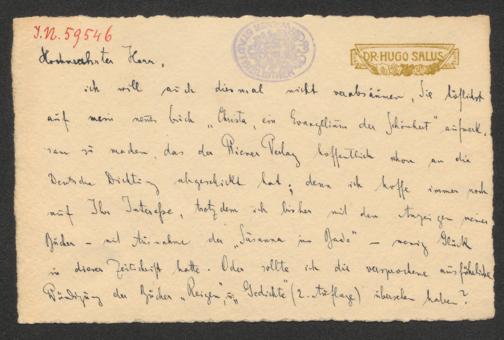 I.N. 59546
DR HUGO SALUS
Hochverehrter Herr,
ich will auch diesmal nicht verabsäumen, Sie höflichst
auf mein neues Buch „Christa, ein Evangelium der Schönheit" aufmerk-
sam zu machen, das der Wiener Verlag hoffentlich schon an die
Deutsche Dichtung abgeschickt hat; denn ich hoffe immer noch
auf Ihr Interesse, trotzdem ich bisher mit den Anzeigen meiner
Bücher – mit Ausnahme der „Susanna im Bade" – wenig Glück
in dieser Zeitschrift hatte. Oder sollte ich die versprochene ausführliche
Würdigung der Bücher „Reigen", u. „Gedichte" (2. Auflage) übersehen haben?